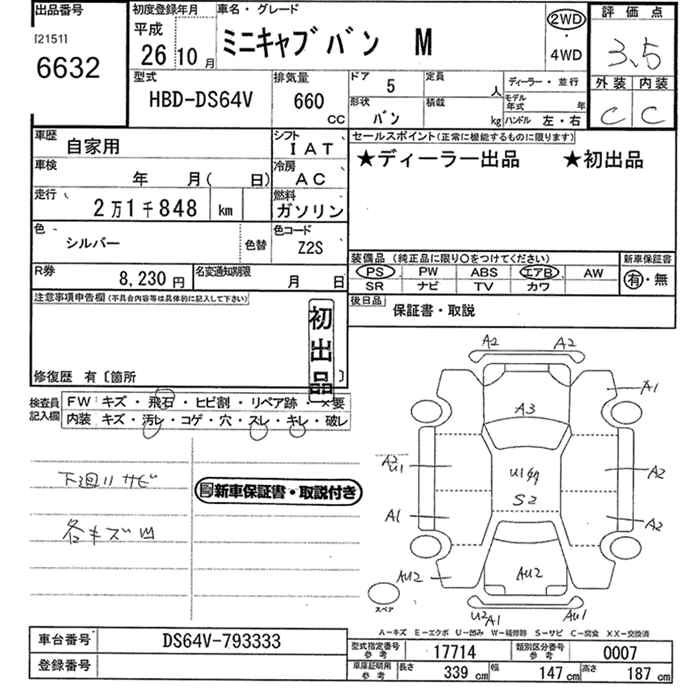 出品番号
[21511
6632
初度登録年月
平成
26 10 月
車名・グレード
ミニキャブバン M
2WD
・
4WD
評価点
3.5
外装 内装
C C
型式
HBD-DS64V
排気量
660
CC
ドア 5
定員 人
ディーラー・並行
形状 バン
積載 kg
モデル年式 年
ハンドル 左・右
車歴 自家用
シフト IAT
車検 年 月( 日)
冷房 AC
走行 2万1千848 km
燃料 ガソリン
色 シルバー 色替
色コード Z2S
R券 8,230円
名変通知期限 月 日
セールスポイント(正常に機能するものに限ります)
★ディーラー出品 ★初出品
装備品(純正品に限り○をつけてください)
新車保証書
PS PW ABS エアB AW
SR ナビ TV カワ
有・無
後日品
保証書・取説
注意事項申告欄(不具合内容等は具体的に記入して下さい)
初出品
修復歴 有〔箇所 〕
検査員記入欄
FW: キズ・飛石・ヒビ割・リペア跡・×要
内装 キズ・汚レ・コゲ・穴・スレ・キレ・破レ
下廻リサビ
新車保証書・取説付き
各キズ凹
A2 A2
A1
A3
A2
U1
U1
S2
A2
A1
A2
AU2
AU2
スペア
U2 A1 AU1
A-キズ E-エクボ U-凹み W-補修跡 S-サビ C-腐食 XX-交換済
車台番号 DS64V-793333
登録番号
型式指定番号 参考 17714
類別区分番号 参考 0007
車庫証明用 参考
長さ 339 cm 幅 147 cm 高さ 187 cm